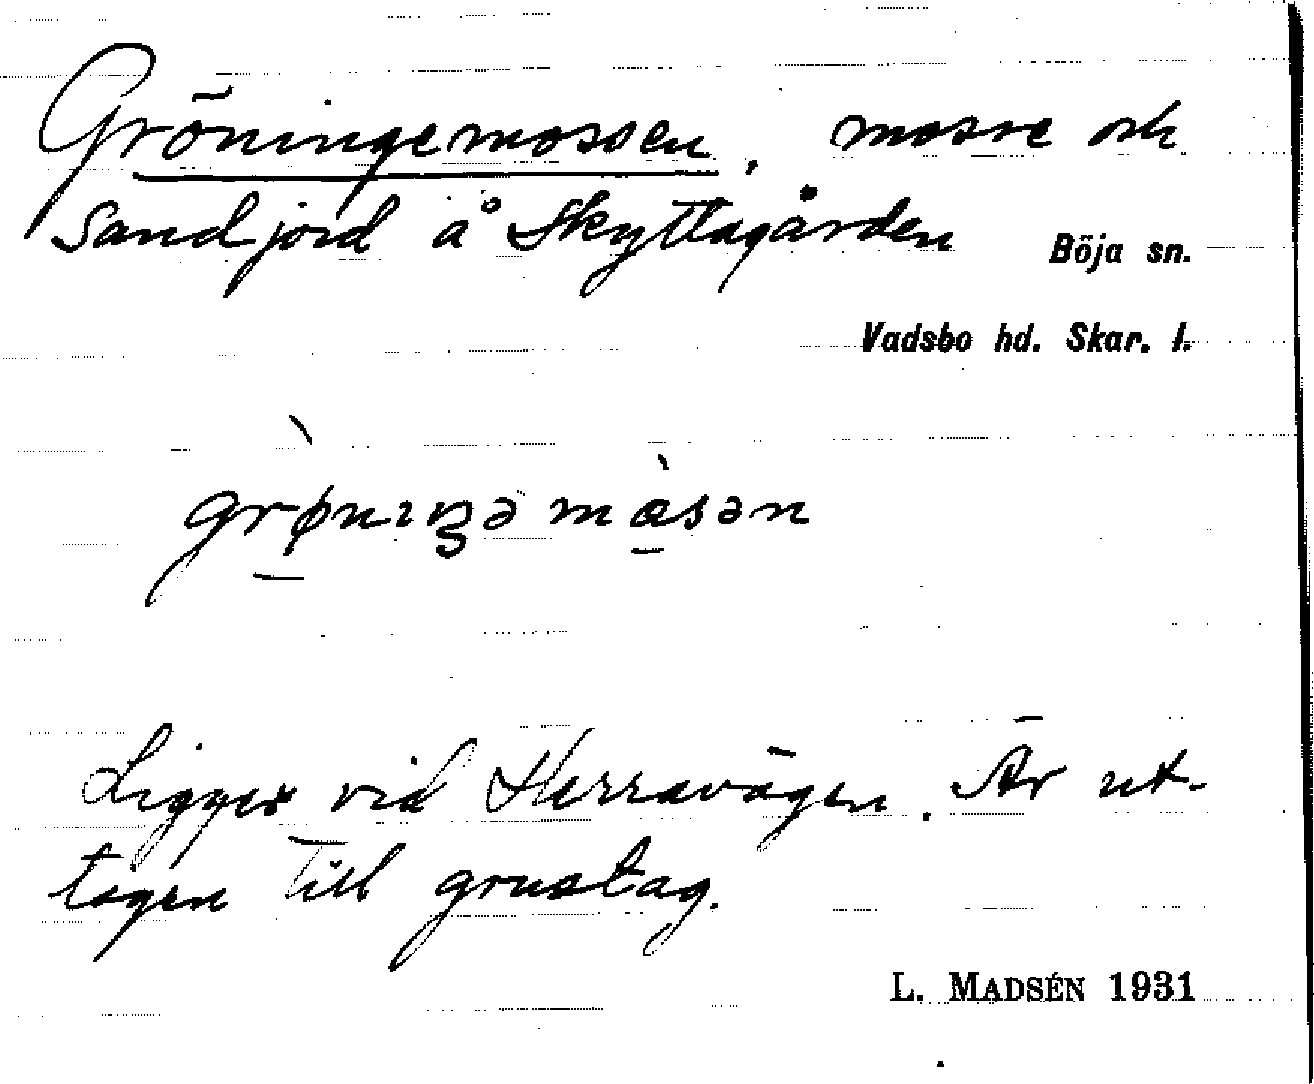 Gröningemossen, mosse och
sandjord å Skyttagården
Böja sn.
Vadsbo hd. Skar. l.
grø̀nıŋə mɑ̀sən
Ligger vid Herravägen. Är ut-
tagen till grustag.
L. MADSÉN 1931